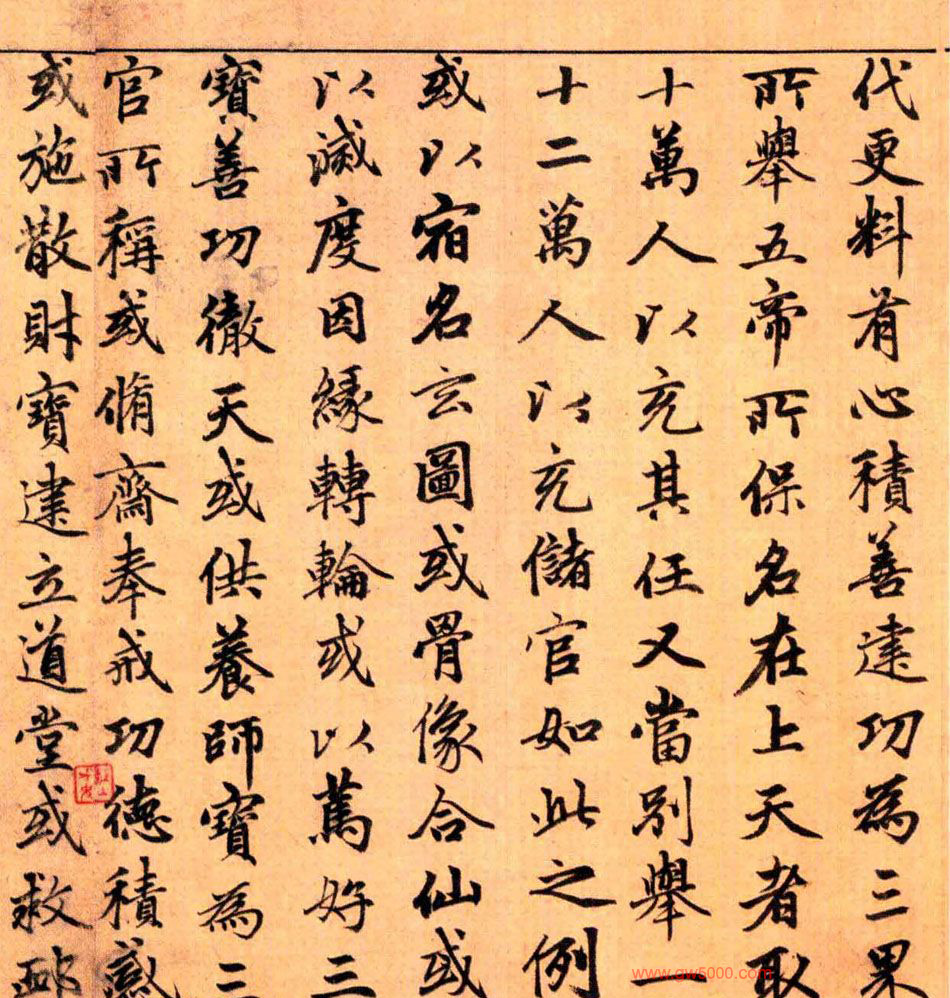 代更料有心積善建功為三果
所舉五帝所保名在上天者取
十萬人以充其任又當別舉一
十二萬人以充儲官如此之例
或以宿名玄圖或骨像合仙或
以滅度因緣轉輪或以篤好三
寶善功徹天或供養師寶為三
官所稱或脩齋奉戒功德積感
或施散財寶建立道堂或救卹
www.gw5000.com